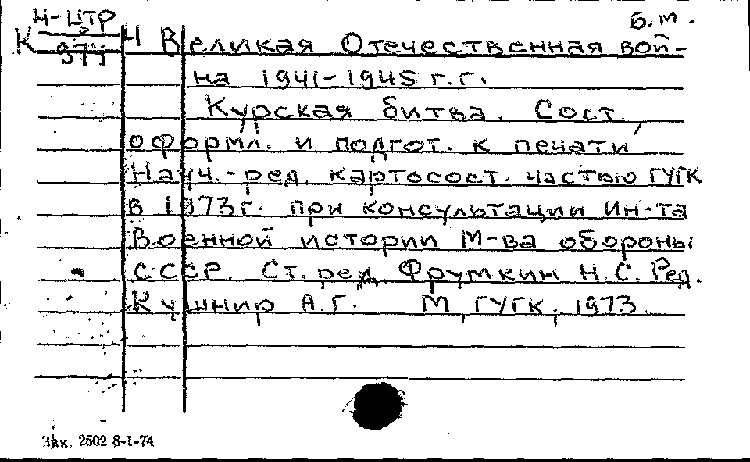 Ч-ЦТР
Б.м.
К 977 Ч Великая Отечественная вой-
на 1941-1945 г.г.
Курская битва. Сост,
оформл. и подгот. к печати
Науч.-ред. картосост. частью ГУГК
в 1973г. при консультации Ин-та
Военной истории М-ва обороны
СССР. Ст. ред. Фрумкин Н.С. Ред.
Кушнир А.Г. М, ГУГК, 1973.
Зак. 2502 8-I-74